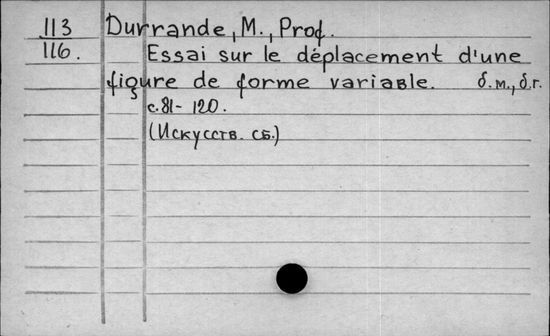 113 Durrande, M., Prof.
116. Essai sur le déplacement d'une
figure de forme variable. б.м., б.г.
с. 81-120.
(Искусств. сб.)